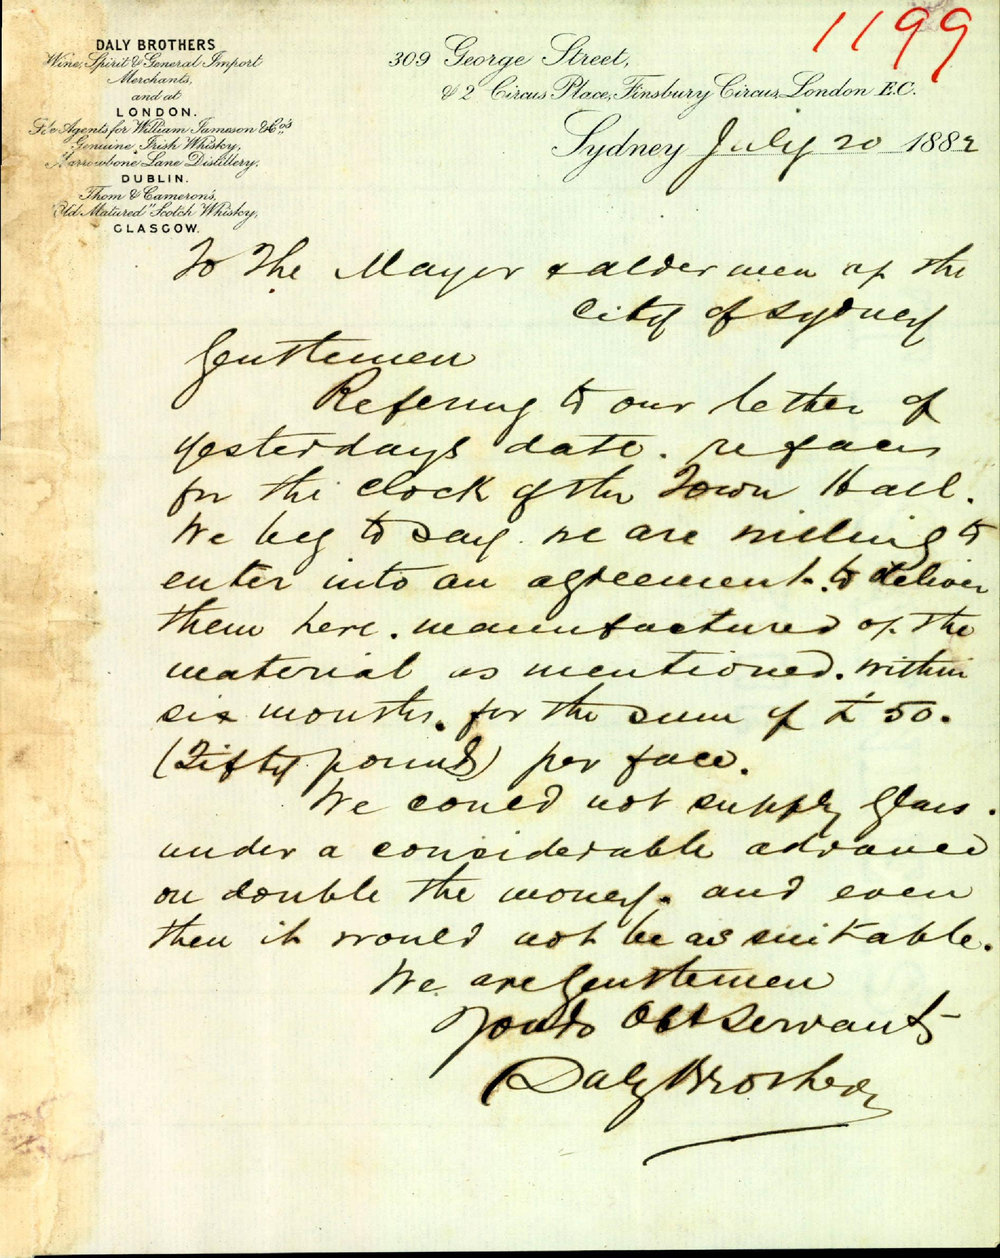 1199
DALY BROTHERS
Wine, Spirit & General Import
Merchants,
and at
LONDON.
Sole Agents for William Jameson & Co's
Genuine Irish Whisky,
Marrowbone Lane Distillery,
DUBLIN.
Thom & Cameron's,
"Old Matured" Scotch Whisky,
GLASGOW.
309 George Street,
& 2 Circus Place, Finsbury Circus London E.C.
Sydney July 20 1882
To The Mayor & aldermen of the
City of Sydney
Gentlemen
Refering to our letter of
yesterdays date. re faces
for the Clock of the Town Hall.
We beg to say. we are willing to
enter into an agreement. to deliver
them here. manufactured of the
material as mentioned. within
six months. for the sum of £50.
(Fifty pounds) per face.
We could not supply Glass.
under a considerable advance
on double the money. and even
then it would not be as suitable.
We are Gentlemen
Yours Obt Servants
Daly Brothers